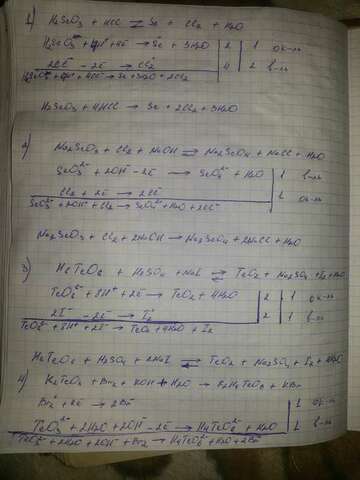 1) H₂SeO₃ + HCl ⇄ Se + Cl₂ + H₂O
H₂SeO₃ + 4H⁺ + 4ē → Se + 3H₂O | 2 | 1 ок-ль
2Cl⁻ - 2ē → Cl₂ | 4 | 2 в-ль
H₂SeO₃ + 4H⁺ + 4Cl⁻ → Se + 3H₂O + 2Cl₂
H₂SeO₃ + 4HCl → Se + 2Cl₂ + 3H₂O
2) Na₂SeO₃ + Cl₂ + NaOH ⇄ Na₂SeO₄ + NaCl + H₂O
SeO₃²⁻ + 2OH⁻ - 2ē → SeO₄²⁻ + H₂O | 1 в-ль
Cl₂ + 2ē → 2Cl⁻ | 1 ок-ль
SeO₃²⁻ + 2OH⁻ + Cl₂ → SeO₄²⁻ + H₂O + 2Cl⁻
Na₂SeO₃ + Cl₂ + 2NaOH → Na₂SeO₄ + 2NaCl + H₂O
3) + H₂SO₄ + NaI ⇄ TeO₂ + Na₂SO₄ + I₂ + H₂O
+ 8H⁺ + 2ē → TeO₂ + 4H₂O | 2 | 1 ок-ль
2I⁻ - 2ē → I₂ | 2 | 1 в-ль
+ 8H⁺ + → TeO₂ + 4H₂O + I₂
+ H₂SO₄ + 2NaI ⇄ TeO₂ + Na₂SO₄ + I₂ +
4) + Br₂ + KOH + H₂O → + KBr
Br₂ + 2ē → 2Br⁻ | 1 ок-ль
+ 2H₂O + 2OH⁻ - 2ē → + H₂O | 1 в-ль
+ 2H₂O + 2OH⁻ + Br₂ → + H₂O + 2Br⁻